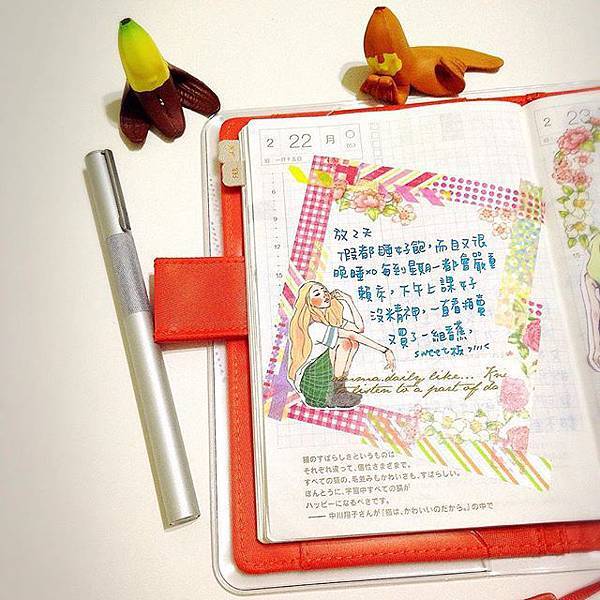 2 22 月
一月十五日
2 23
放2天
假都睡好飽,而且又很
晚睡xD 每到星期一都會嚴重
賴床,下午上課好
沒精神,一直看拍賣
又買了一組香蕉,
sweet板
emma.daily like... Kne
to listen to a part of do
猫のすばらしさというものは
それぞれ違って、個性さまざまで。
すべての猫の、毛並みもかわいさも、すばらしい。
ほんとうに、宇宙中すべての猫が
ハッピーになるべきです。
—— 中川翔子さんが『猫は、かわいいのだから。』の中で